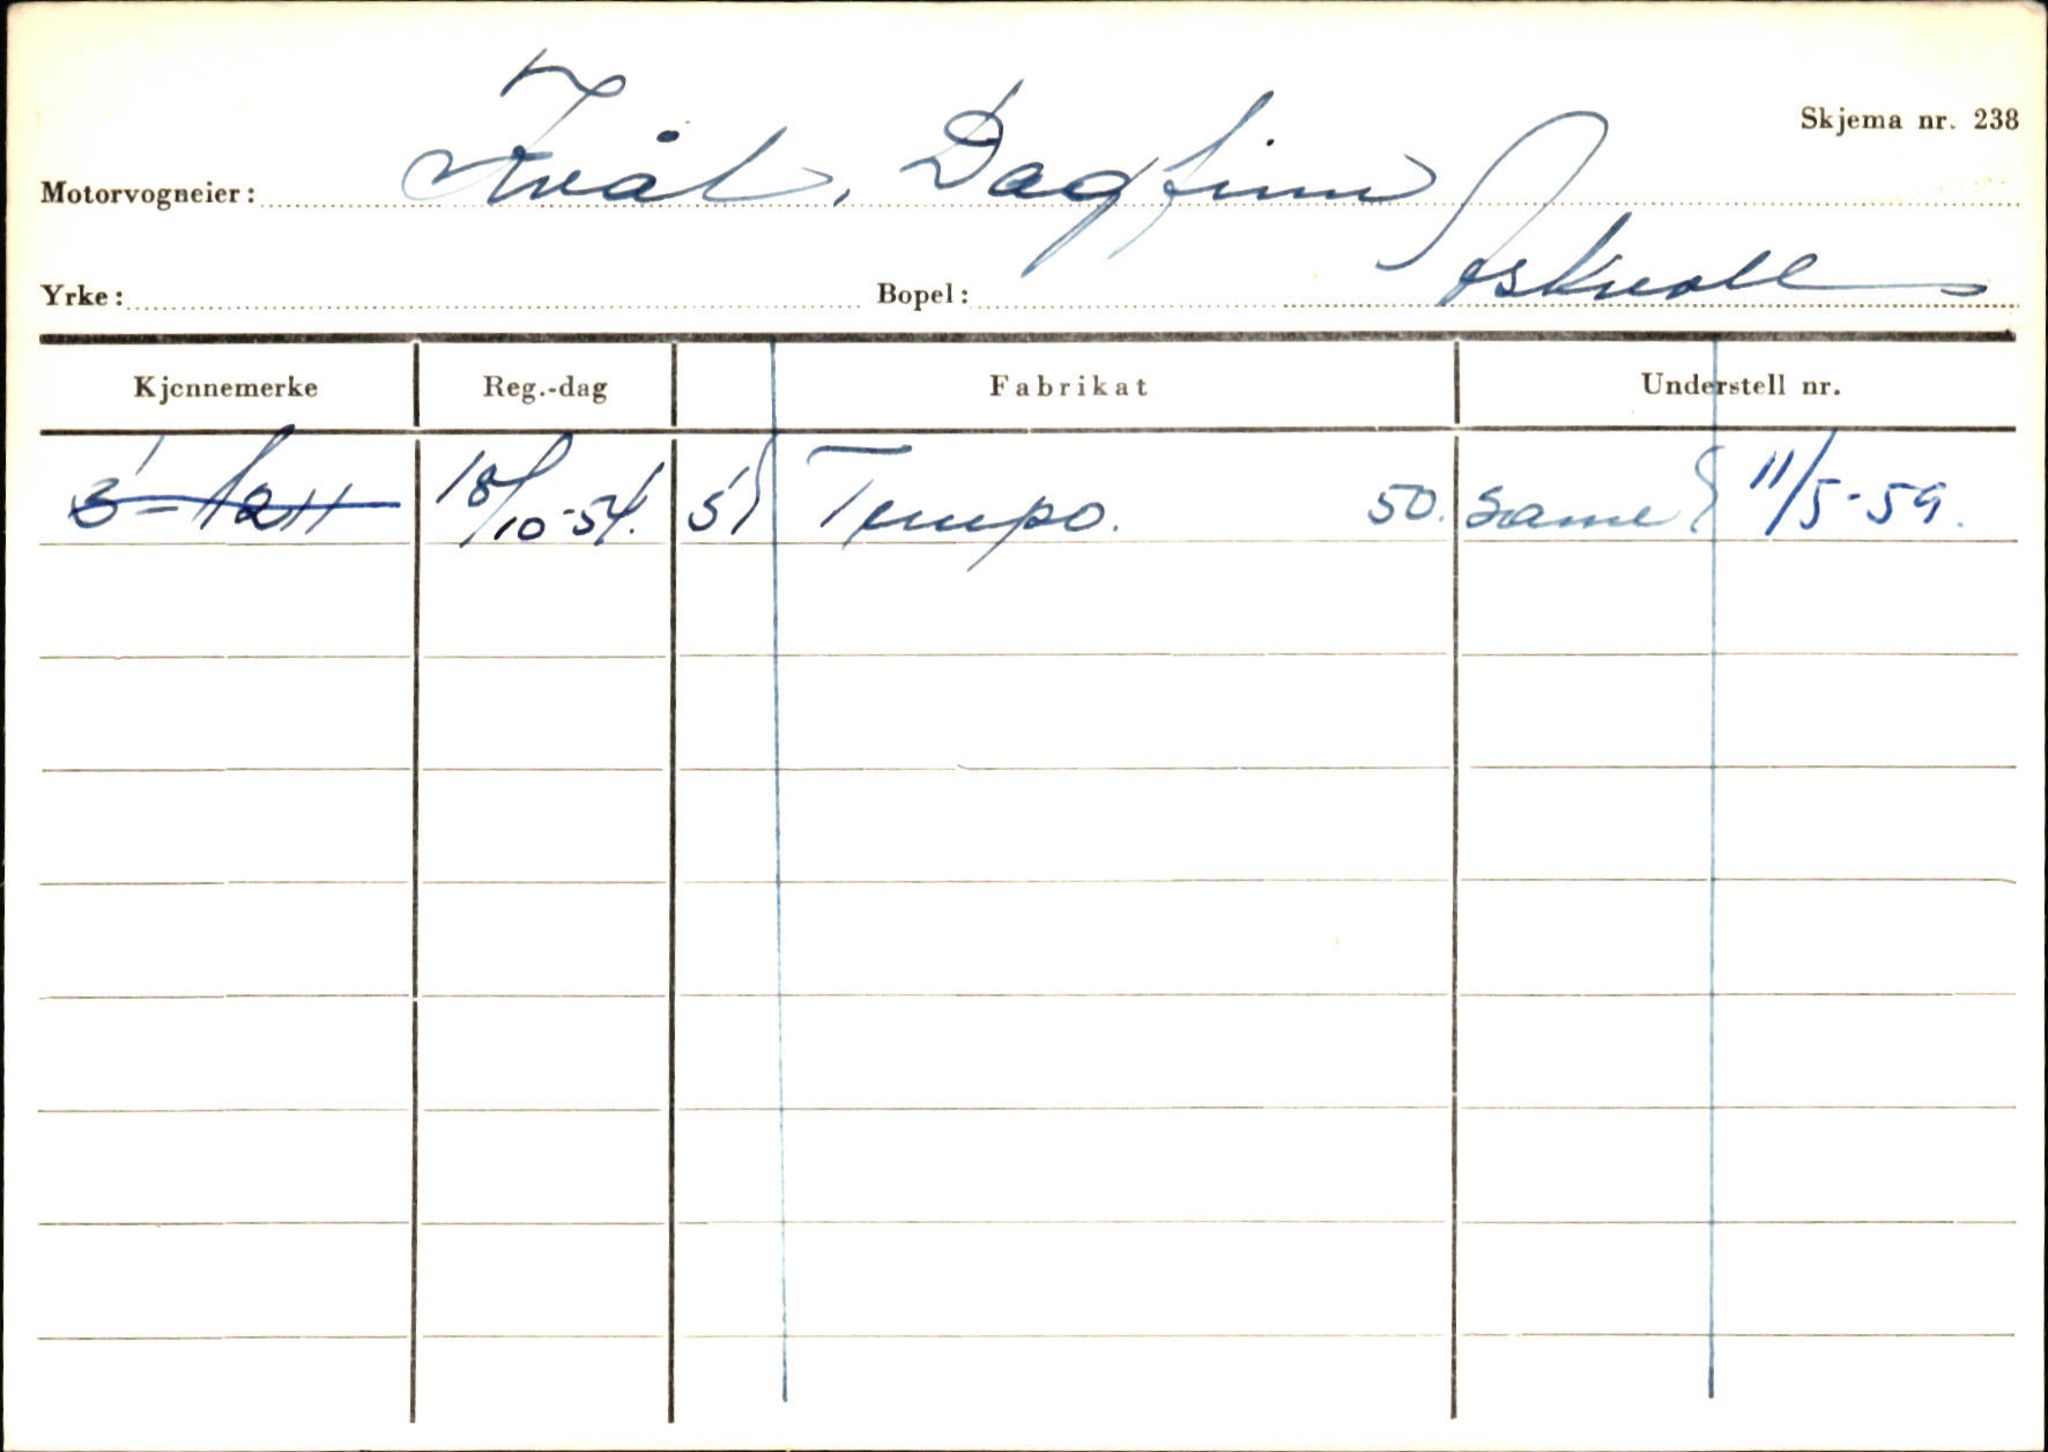 Skjema nr. 238
Motorvogneier: Kvål, Dagfinn
Yrke: Bopel: Askvoll
Kjennemerke Reg.-dag Fabrikat Understell nr.
S-1211 18/10-54. Tempo. 50. Same } 11/5-59.